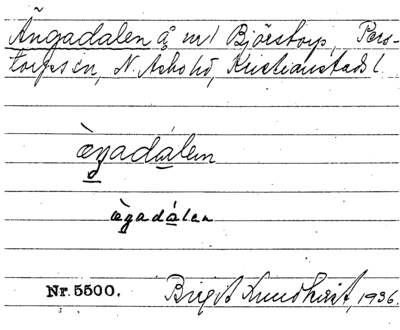 Ängadalen å nr 1 Björstorp, Pers-
torps sn, N. Åsbo hd, Kristianstads l.
ængadálen
ægadálen
Nr. 5500. Birgit Lundkvist, 1936.